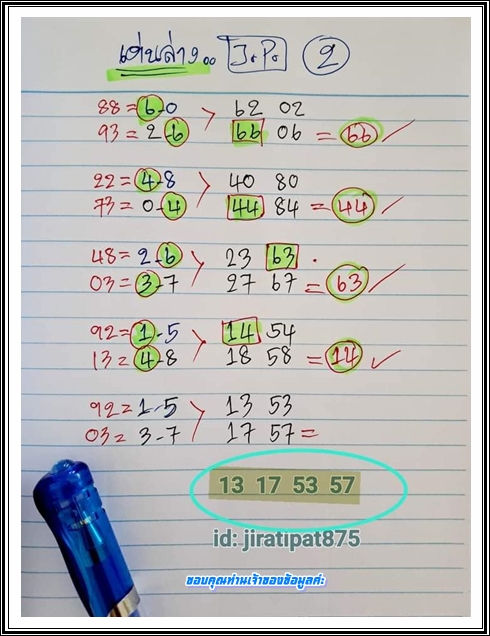 เด่นล่าง.. J.P. 2
88 = 6-0 > 62 02
93 = 2-6 66 06 = 66 ✓
22 = 4-8 > 40 80
73 = 0-4 44 84 = 44 ✓
48 = 2-6 > 23 63 .
03 = 3-7 27 67 = 63 ✓
92 = 1-5 > 14 54
13 = 4-8 18 58 = 14 ✓
92 = 1-5 > 13 53
03 = 3-7 17 57 =
13 17 53 57
id: jiratipat875
ขอบคุณท่านเจ้าของข้อมูลค่ะ